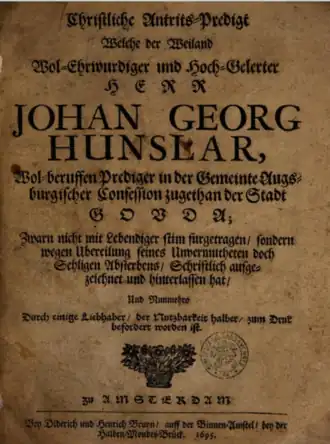 Christliche Antrits-Predigt
Welche der Weiland
Wol-Ehrwurdiger und Hoch-Gelerter
HERR
JOHAN GEORG
HUNSLAR,
Wol-beruffen Prediger in der Gemeinte Augs-
burgischer Confession zugethan der Stadt
GOVDA;
Zwarn nicht mit Lebendiger stim fürgetragen/ sondern
wegen Ubereilung seines Unvermutheten doch
Sehligen Absterbens/ Schriftlich aufge-
zeichnet und hinterlassen hat/
Und Nunmehro
Durch einige Liebhaber/ der Nutzbarkeit halber/ zum Druk
befordert worden ist.
zu AMSTERDAM
Bey Diderich und Henrich Bruyn/ auff der Binnen-Amstel/ bey der
Halben-Mondes-Brück. 1695.